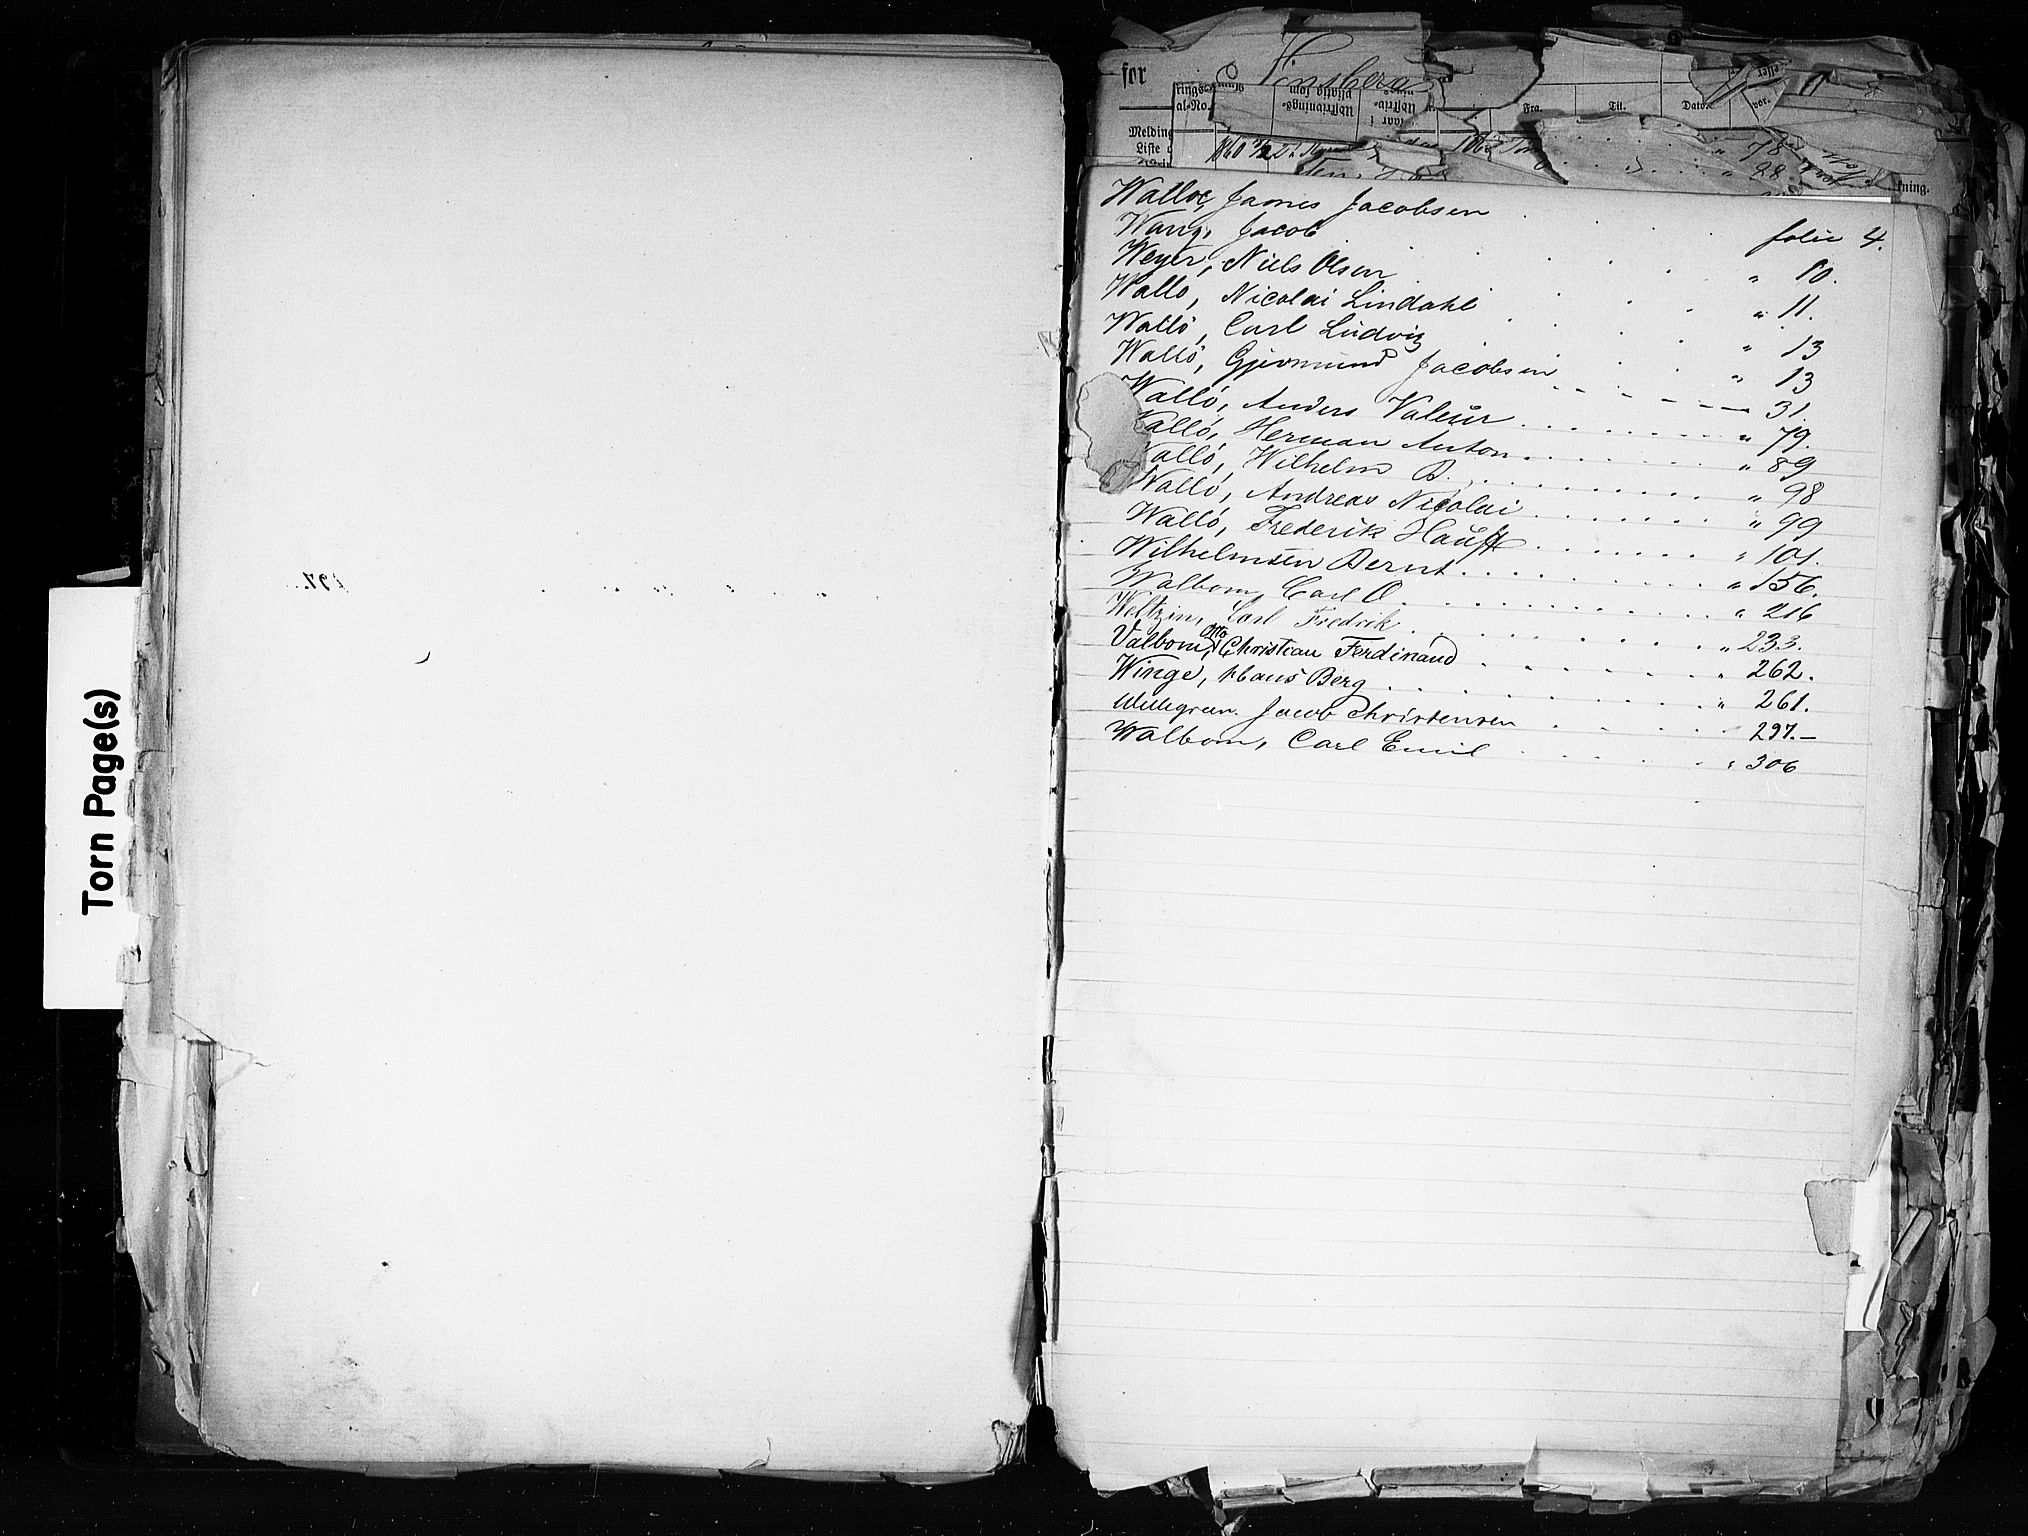 Torn Page(s)
297.
for
Vinsberg
Fra. Til. Dato.
Melding
Liste
78
98
ning.
Walloe, James Jacobsen folio 4.
Wang, Jacob " 10.
Weyer, Niels Olsen " 11.
Wallo, Nicolai Lindahl " 13
Walló, Carl Ludvig " 13
Walló, Gjermund Jacobsen 31.
Walló, Anders Valeur " 79.
Walló, Herman Anton " 89
Walló, Wilhelm B. " 98
Walló, Andreas Nicolai " 99
Walló, Frederik Hauff " 101.
Wilhelmsen Bernt " 156.
Walbom, Carl O. " 216
Weltzin, Carl Fredrik " 233.
Valbom, Otto Christian Ferdinand " 262.
Winge, Hans Berg " 261.
Jacob Christensen 297.—
Walbom, Carl Emil " 306